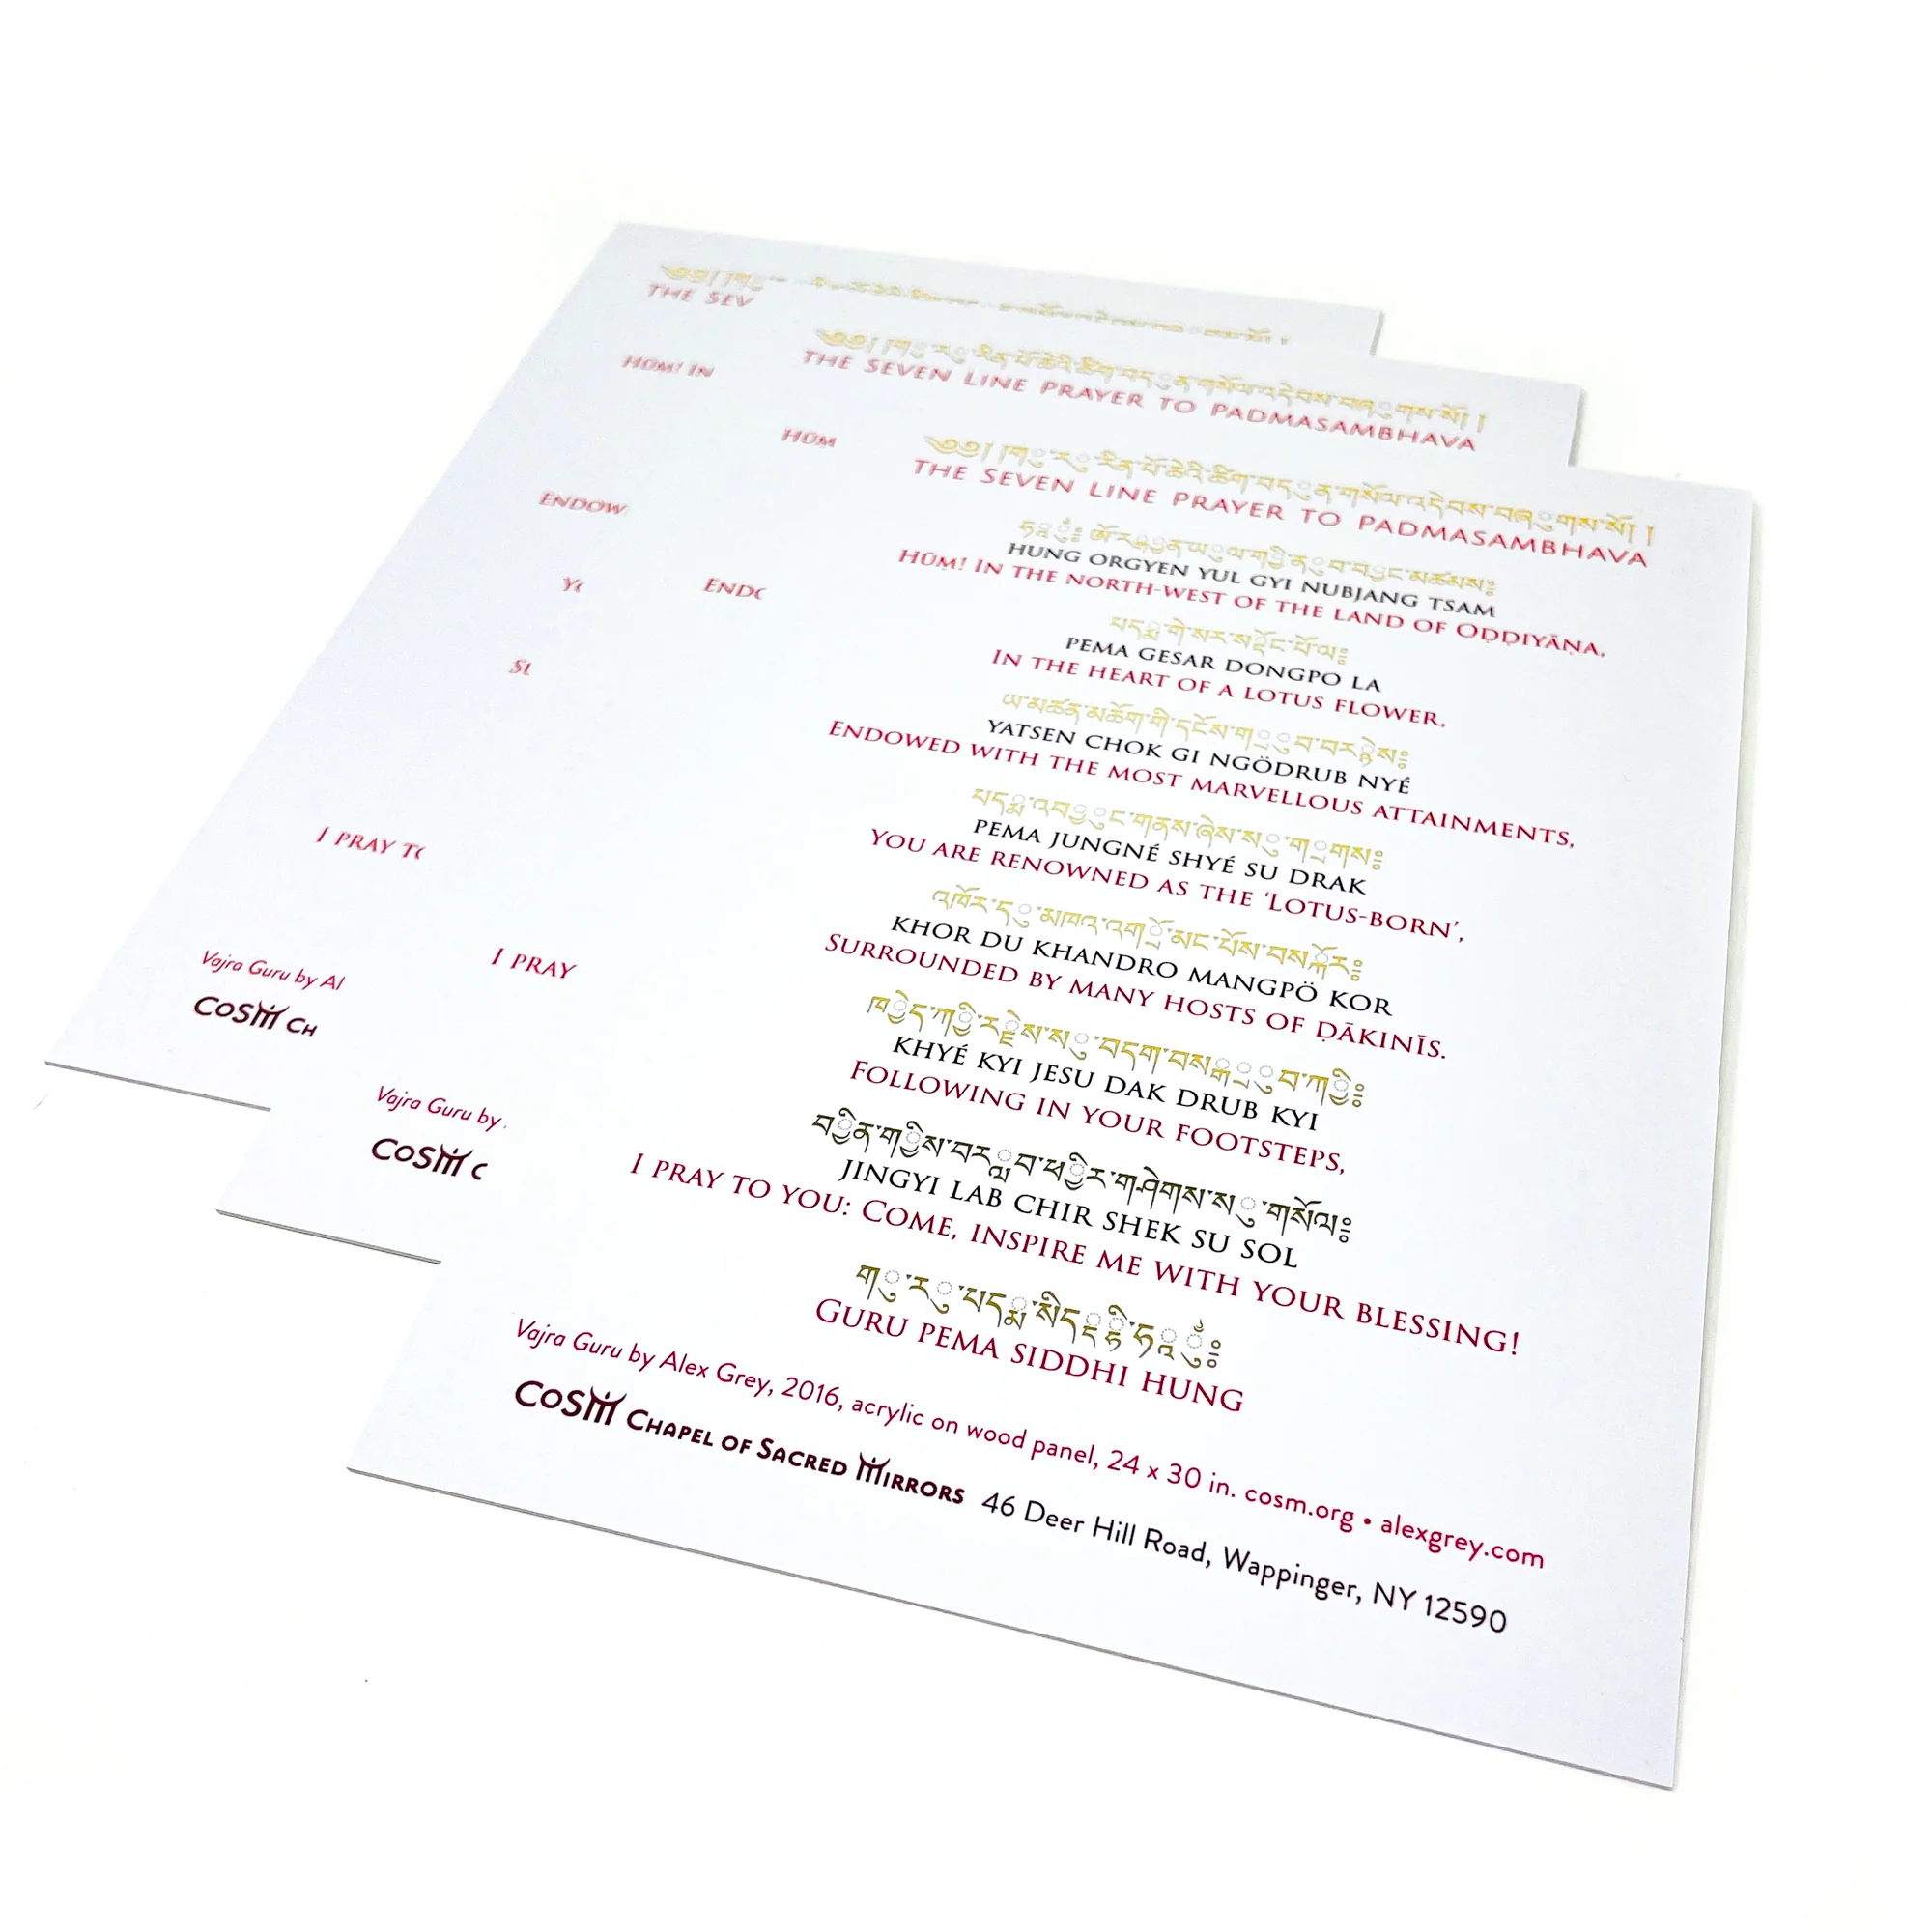 THE SEV
HŪṂ! IN
ENDOW
I PRAY TO
Vajra Guru by Al
CoSM CH
༄༅། །གུ་རུ་རིན་པོ་ཆེའི་ཚིག་བདུན་གསོལ་འདེབས་བཞུགས་སོ། །
THE SEVEN LINE PRAYER TO PADMASAMBHAVA
HŪṂ
I PRAY
Vajra Guru by
CoSM C
༄༅། །གུ་རུ་རིན་པོ་ཆེའི་ཚིག་བདུན་གསོལ་འདེབས་བཞུགས་སོ། །
THE SEVEN LINE PRAYER TO PADMASAMBHAVA
ཧཱུྃ༔ ཨོ་རྒྱན་ཡུལ་གྱི་ནུབ་བྱང་མཚམས༔
HUNG ORGYEN YUL GYI NUBJANG TSAM
HŪṂ! IN THE NORTH-WEST OF THE LAND OF OḌḌIYĀṆA,
པདྨ་གེ་སར་སྡོང་པོ་ལ༔
PEMA GESAR DONGPO LA
IN THE HEART OF A LOTUS FLOWER.
ཡ་མཚན་མཆོག་གི་དངོས་གྲུབ་བརྙེས༔
YATSEN CHOK GI NGÖDRUB NYÉ
ENDOWED WITH THE MOST MARVELLOUS ATTAINMENTS,
པདྨ་འབྱུང་གནས་ཞེས་སུ་གྲགས༔
PEMA JUNGNÉ SHYÉ SU DRAK
YOU ARE RENOWNED AS THE ‘LOTUS-BORN’,
འཁོར་དུ་མཁའ་འགྲོ་མང་པོས་བསྐོར༔
KHOR DU KHANDRO MANGPÖ KOR
SURROUNDED BY MANY HOSTS OF ḌĀKINĪS.
ཁྱེད་ཀྱི་རྗེས་སུ་བདག་བསྒྲུབ་ཀྱི༔
KHYÉ KYI JESU DAK DRUB KYI
FOLLOWING IN YOUR FOOTSTEPS,
བྱིན་གྱིས་བརླབ་ཕྱིར་གཤེགས་སུ་གསོལ༔
JINGYI LAB CHIR SHEK SU SOL
I PRAY TO YOU: COME, INSPIRE ME WITH YOUR BLESSING!
གུ་རུ་པདྨ་སིདྡྷི་ཧཱུྃ༔
GURU PEMA SIDDHI HUNG
Vajra Guru by Alex Grey, 2016, acrylic on wood panel, 24 x 30 in. cosm.org • alexgrey.com
CoSM CHAPEL OF SACRED MIRRORS 46 Deer Hill Road, Wappinger, NY 12590